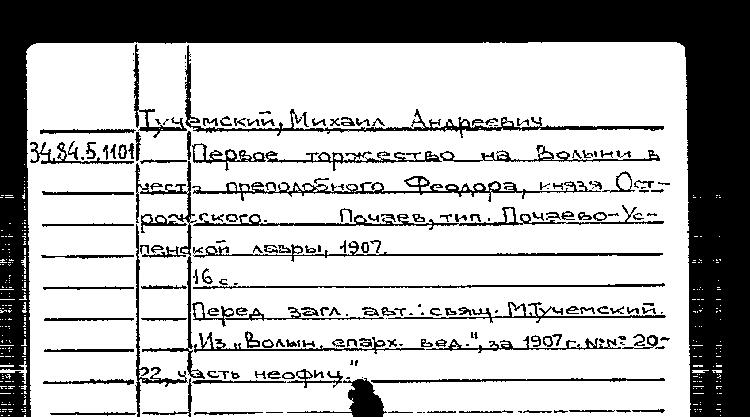 Тучемский, Михаил Андреевич
34.84.5.1101 Первое торжество на Волыни в
честь преподобного Феодора, князя Ост-
рожсского. Почаев, тип. Почаево-Ус-
пенской лавры, 1907.
16 с.
Перед загл. авт.: свящ. М.Тучемский.
„Из „Волын. епарх. вед.", за 1907 г. №№ 20-
22, часть неофиц."